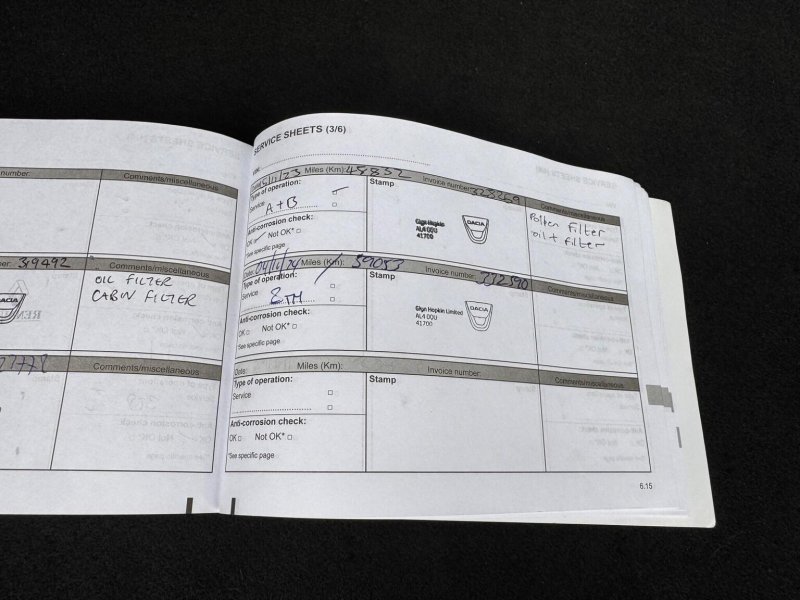 number
Comments/miscellaneous
319492
Comments/miscellaneous
OIL FILTER
CABIN FILTER
DACIA
Comments/miscellaneous
SERVICE SHEETS (3/6)
Miles (Km): 48852
Invoice number:
Comments/miscellaneous
Type of operation:
Service
A+B
Stamp
Glyn Hopkin
AL4 0DU
41700
DACIA
Pollen Filter
oil + filter
Anti-corrosion check:
OK Not OK*
*See specific page
Date: Miles (Km): 59053
Invoice number: 332590
Comments/miscellaneous
Type of operation:
Service
8TH
Stamp
Glyn Hopkin Limited
AL4 0DU
41700
DACIA
Anti-corrosion check:
OK □ Not OK* □
*See specific page
Date: Miles (Km):
Invoice number:
Comments/miscellaneous
Type of operation:
Service □
□
Stamp
Anti-corrosion check:
OK □ Not OK* □
*See specific page
6.15